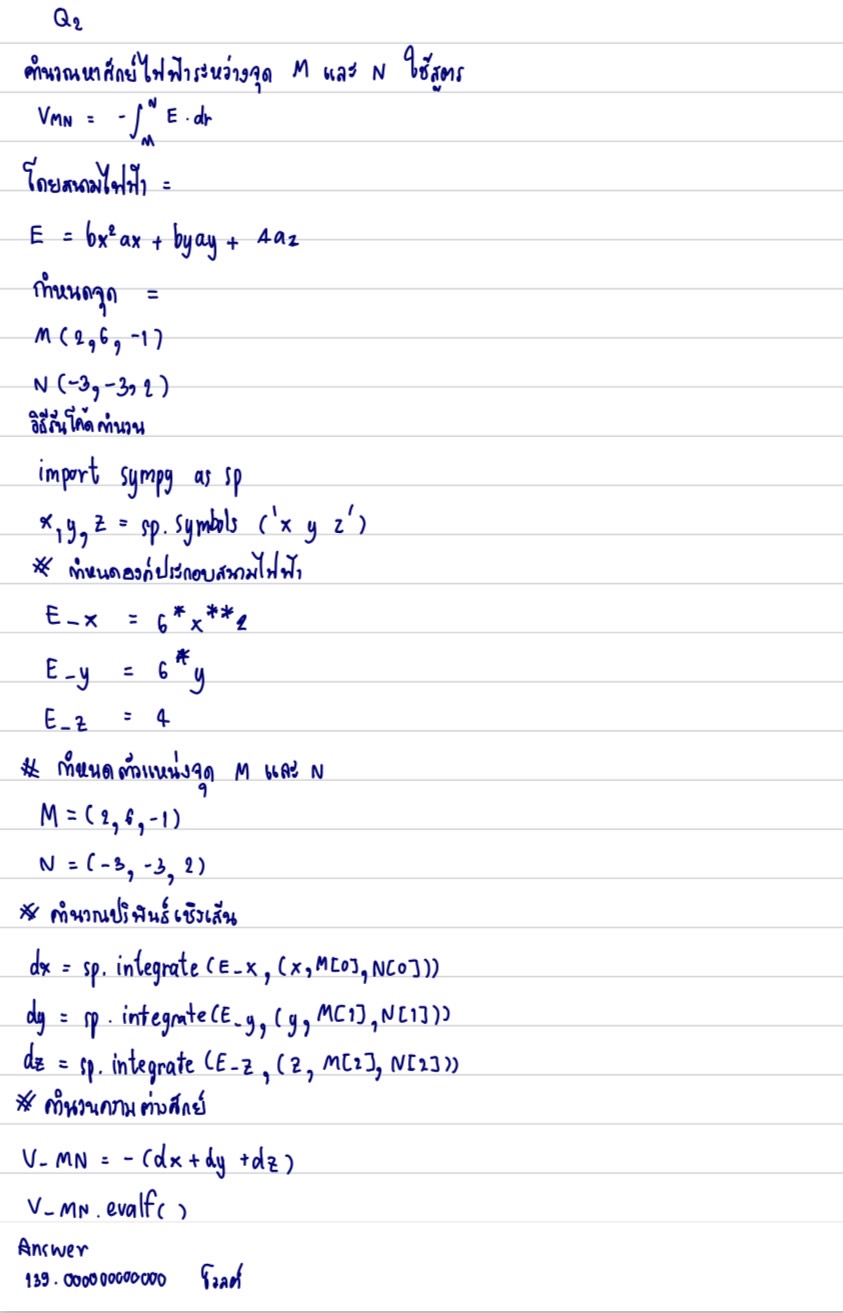 Q2
คำนวณหาศักย์ไฟฟ้าระหว่างจุด M และ N ใช้สูตร
VMN = -∫_M^N E · dr
โดยสนามไฟฟ้า =
E = 6x²ax + 6yay + 4az
กำหนดจุด =
M (2,6,-1)
N (-3,-3,2)
วิธีรันโค้ดคำนวน
import sympy as sp
x,y,z = sp.symbols ('x y z')
# กำหนดองค์ประกอบสนามไฟฟ้า
E_x = 6*x**2
E_y = 6*y
E_z = 4
# กำหนดตำแหน่งจุด M และ N
M = (2,6,-1)
N = (-3, -3, 2)
# คำนวณปริพันธ์เชิงเส้น
dx = sp. integrate (E_x, (x,M[0],N[0]))
dy = sp. integrate (E_y, (y, M[1],N[1]))
dz = sp. integrate (E_z, (z, M[2], N[2]))
# คำนวนความต่างศักย์
V_MN = - (dx + dy + dz)
V_MN.evalf()
Answer
139.000000000000 โวลต์